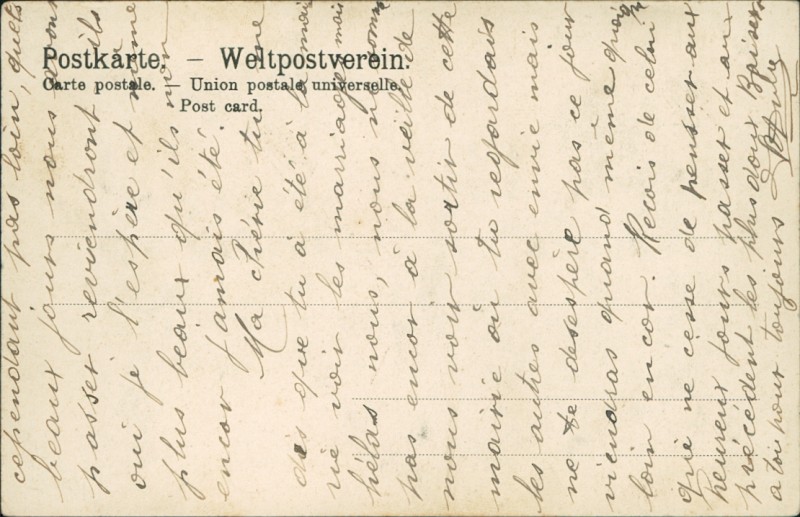 Postkarte. – Weltpostverein.
Carte postale. – Union postale universelle.
Post card.
cependant pas loin, quels
beaux jours nous avons
passer reviendront ils
oui je l'espère et même
plus beaux qu'ils n'on
encor jamais été.
Ma chérie tu me
dis que tu a été à la mai
rie voir les marriage mais
hélas nous, nous ne somme
pas encor à la veille de
nous voir sortir de cette
mairie où tu regardais
les autres avec envie mais
ne te desespère pas ce jour
viendras quand même quoi
loin encor. Reçois de celui
que ne cesse de pensser aux
heureux jours passer et au
précédent les plus doux Baisers
a toi pour toujours